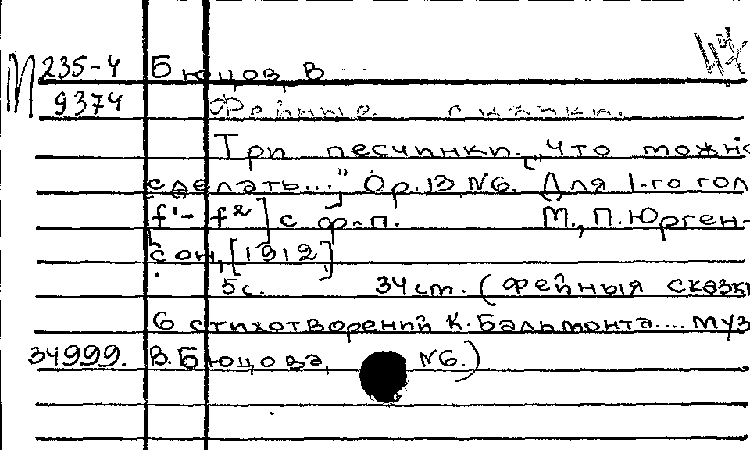 М 235-4 Бюцов, В.
9374 Фейные сказки.
Три песчинки. „Что можно
сделать..." Ор.13 №6. Для 1-го гол
f¹- f²] с ф-п. М., П.Юрген-
сон, [1912]
5с. 34 ст. (Фейныя сказк
6 стихотворений К.Бальмонта.... муз
34999. В.Бюцова, №6.)